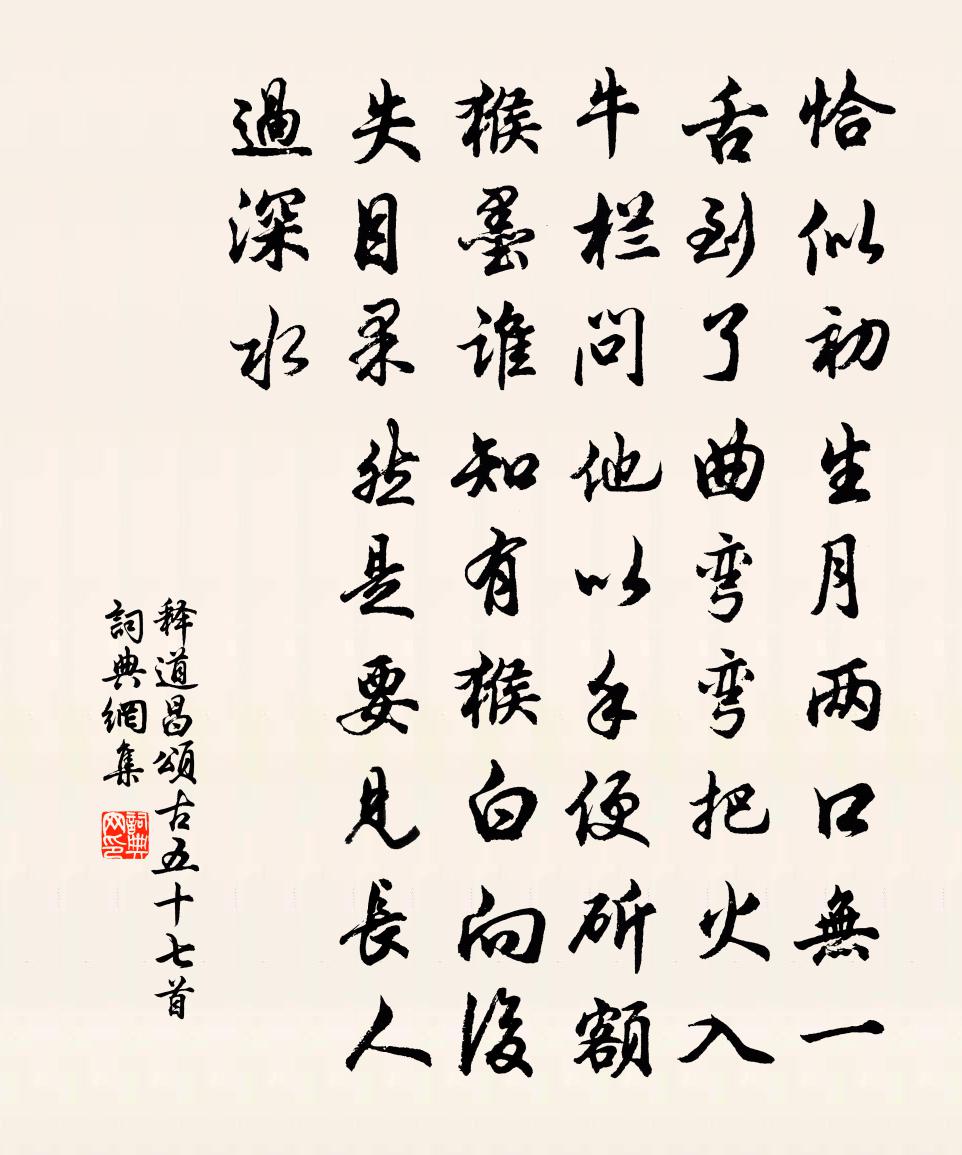 恰似初生月两口無一
舌到了曲弯弯把火入
牛栏问他以手便斫额
猴墨谁知有猴白向後
失目果然是要见長人
過深水
释道昌頌古五十七首
詞典網集
詞典网印